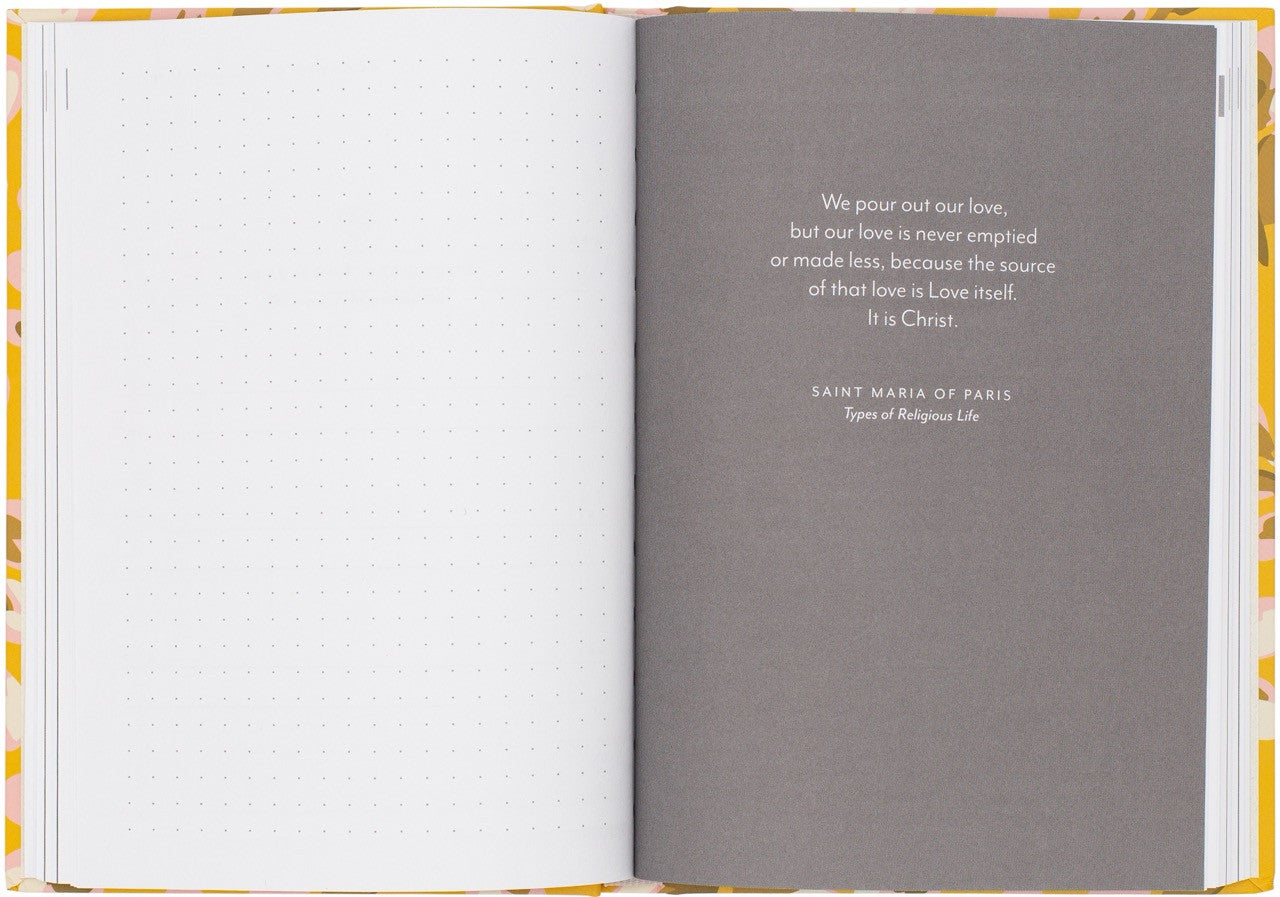 We pour out our love,
but our love is never emptied
or made less, because the source
of that love is Love itself.
It is Christ.
SAINT MARIA OF PARIS
Types of Religious Life